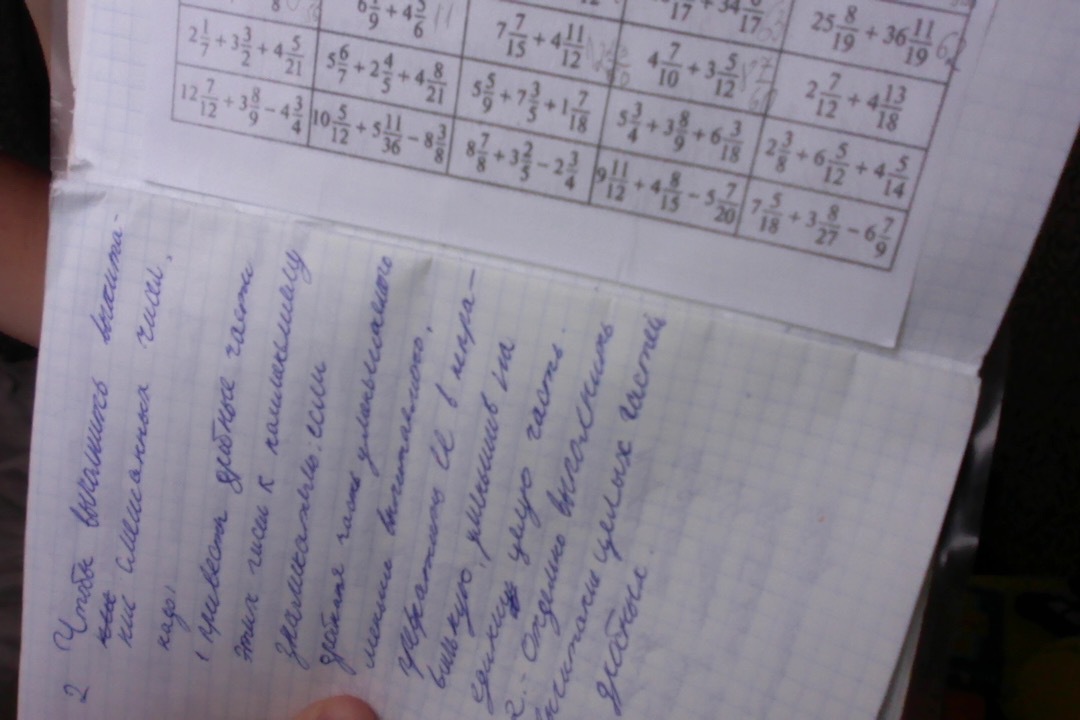 6/9 + 4 5/6 11
7 7/15 + 4 11/12
25 8/19 + 36 11/19 62
2 1/7 + 3 3/2 + 4 5/21
5 6/7 + 2 4/5 + 4 8/21
4 7/10 + 3 5/12
2 7/12 + 4 13/18
12 7/12 + 3 8/9 − 4 3/4
10 5/12 + 5 11/36 − 8 3/8
5 5/9 + 7 3/5 + 1 7/18
5 3/4 + 3 8/9 + 6 3/18
2 3/8 + 6 5/12 + 4 5/14
8 7/8 + 3 2/5 − 2 3/4
9 11/12 + 4 8/15 − 5 7/20
7 5/18 + 3 8/27 − 6 7/9
2 Чтобы выполнить вычита-
ние смешанных чисел,
надо:
1 привести дробные части
этих чисел к наименьшему
знаменателю: если
дробная часть уменьшаемого
меньше вычитаемого,
превратить в непра-
вильную, уменьшив на
единицу целую часть.
2. Отдельно выполнить
вычитание целых частей
дробных.